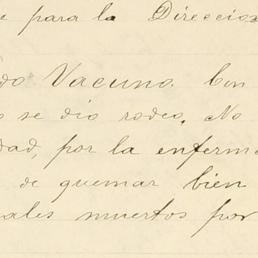 e para la Direccion
do Vacuno. Con
s se dio rodeo. No
dad, por la enferme
de quemar bien
ales muertos por